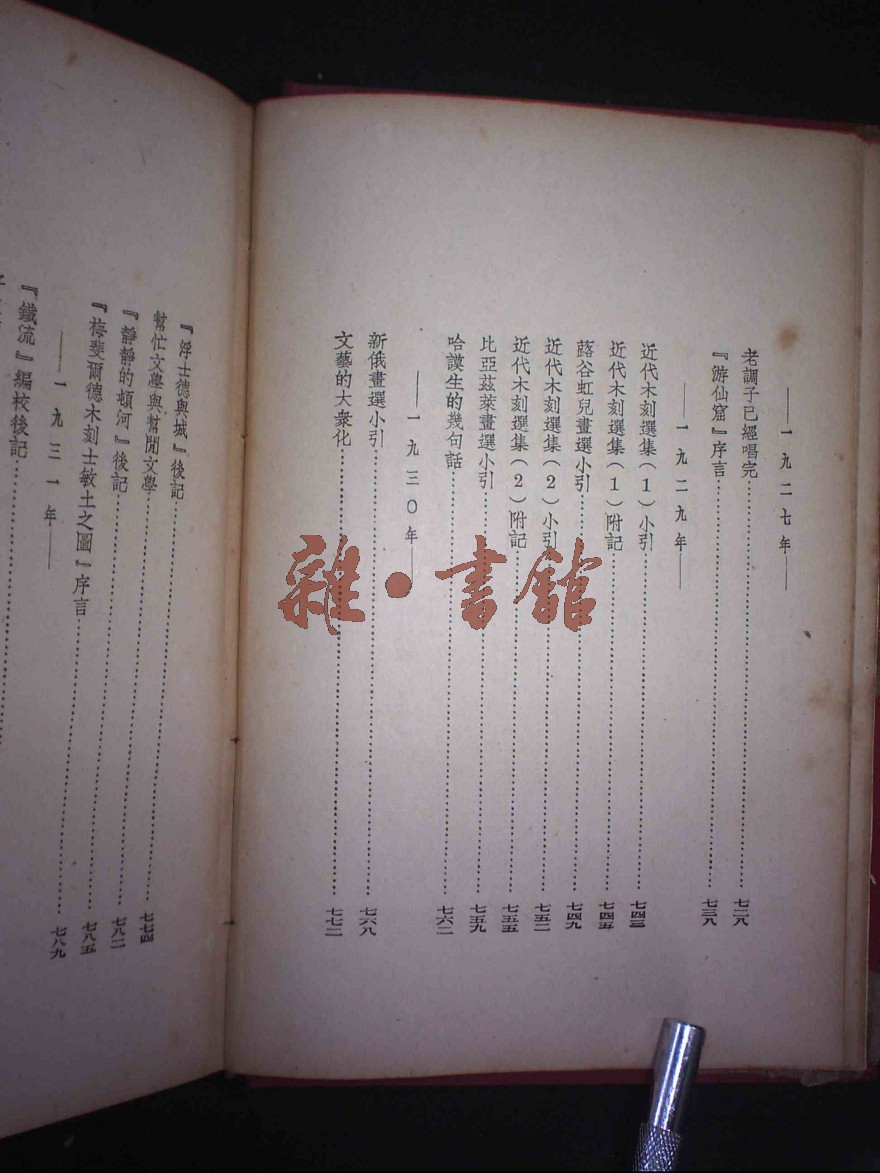 ——一九二七年——
老調子已經唱完……七二八
『游仙窟』序言……七三八
——一九二九年——
近代木刻選集(1)小引……七四三
近代木刻選集(1)附記……七四五
蕗谷虹兒畫選小引……七四九
近代木刻選集(2)小引……七五二
近代木刻選集(2)附記……七五五
比亞茲萊畫選小引……七五九
哈謨生的幾句話……七六二
——一九三〇年——
新俄畫選小引……七六八
文藝的大衆化……七七二
『浮士德與城』後記……七七四
幫忙文學與幫閒文學
『靜靜的頓河』後記……七八二
『梅斐爾德木刻士敏土之圖』序言……七八五
——一九三一年——
『鐵流』編校後記……七八九
雜·書館